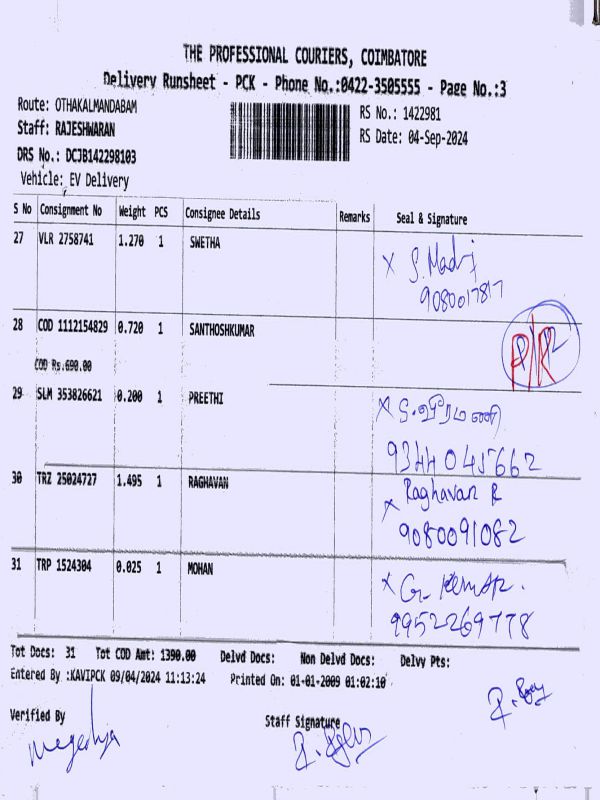 THE PROFESSIONAL COURIERS, COIMBATORE
Delivery Runsheet - PCK - Phone No.:0422-3505555 - Page No.:3
Route: OTHAKALMANDABAM
RS No.: 1422981
Staff: RAJESHWARAN
RS Date: 04-Sep-2024
DRS No.: DCJB142298103
Vehicle: EV Delivery
S No Consignment No Weight PCS Consignee Details Remarks Seal & Signature
27 VLR 2758741 1.270 1 SWETHA
X S. Madij
9080017817
28 COD 1112154829 0.720 1 SANTHOSHKUMAR
COD Rs.690.00
29 SLM 353826621 0.200 1 PREETHI
X S. வீரமணி
9344045662
30 TRZ 25024727 1.495 1 RAGHAVAN
X Raghavan R
9080091082
31 TRP 1524304 0.025 1 MOHAN
X G. Kumar.
9952269778
Tot Docs: 31 Tot COD Amt: 1390.00 Delvd Docs: Non Delvd Docs: Delvy Pts:
Entered By :KAVIPCK 09/04/2024 11:13:24 Printed On: 01-01-2009 01:02:10
Verified By
Staff Signature